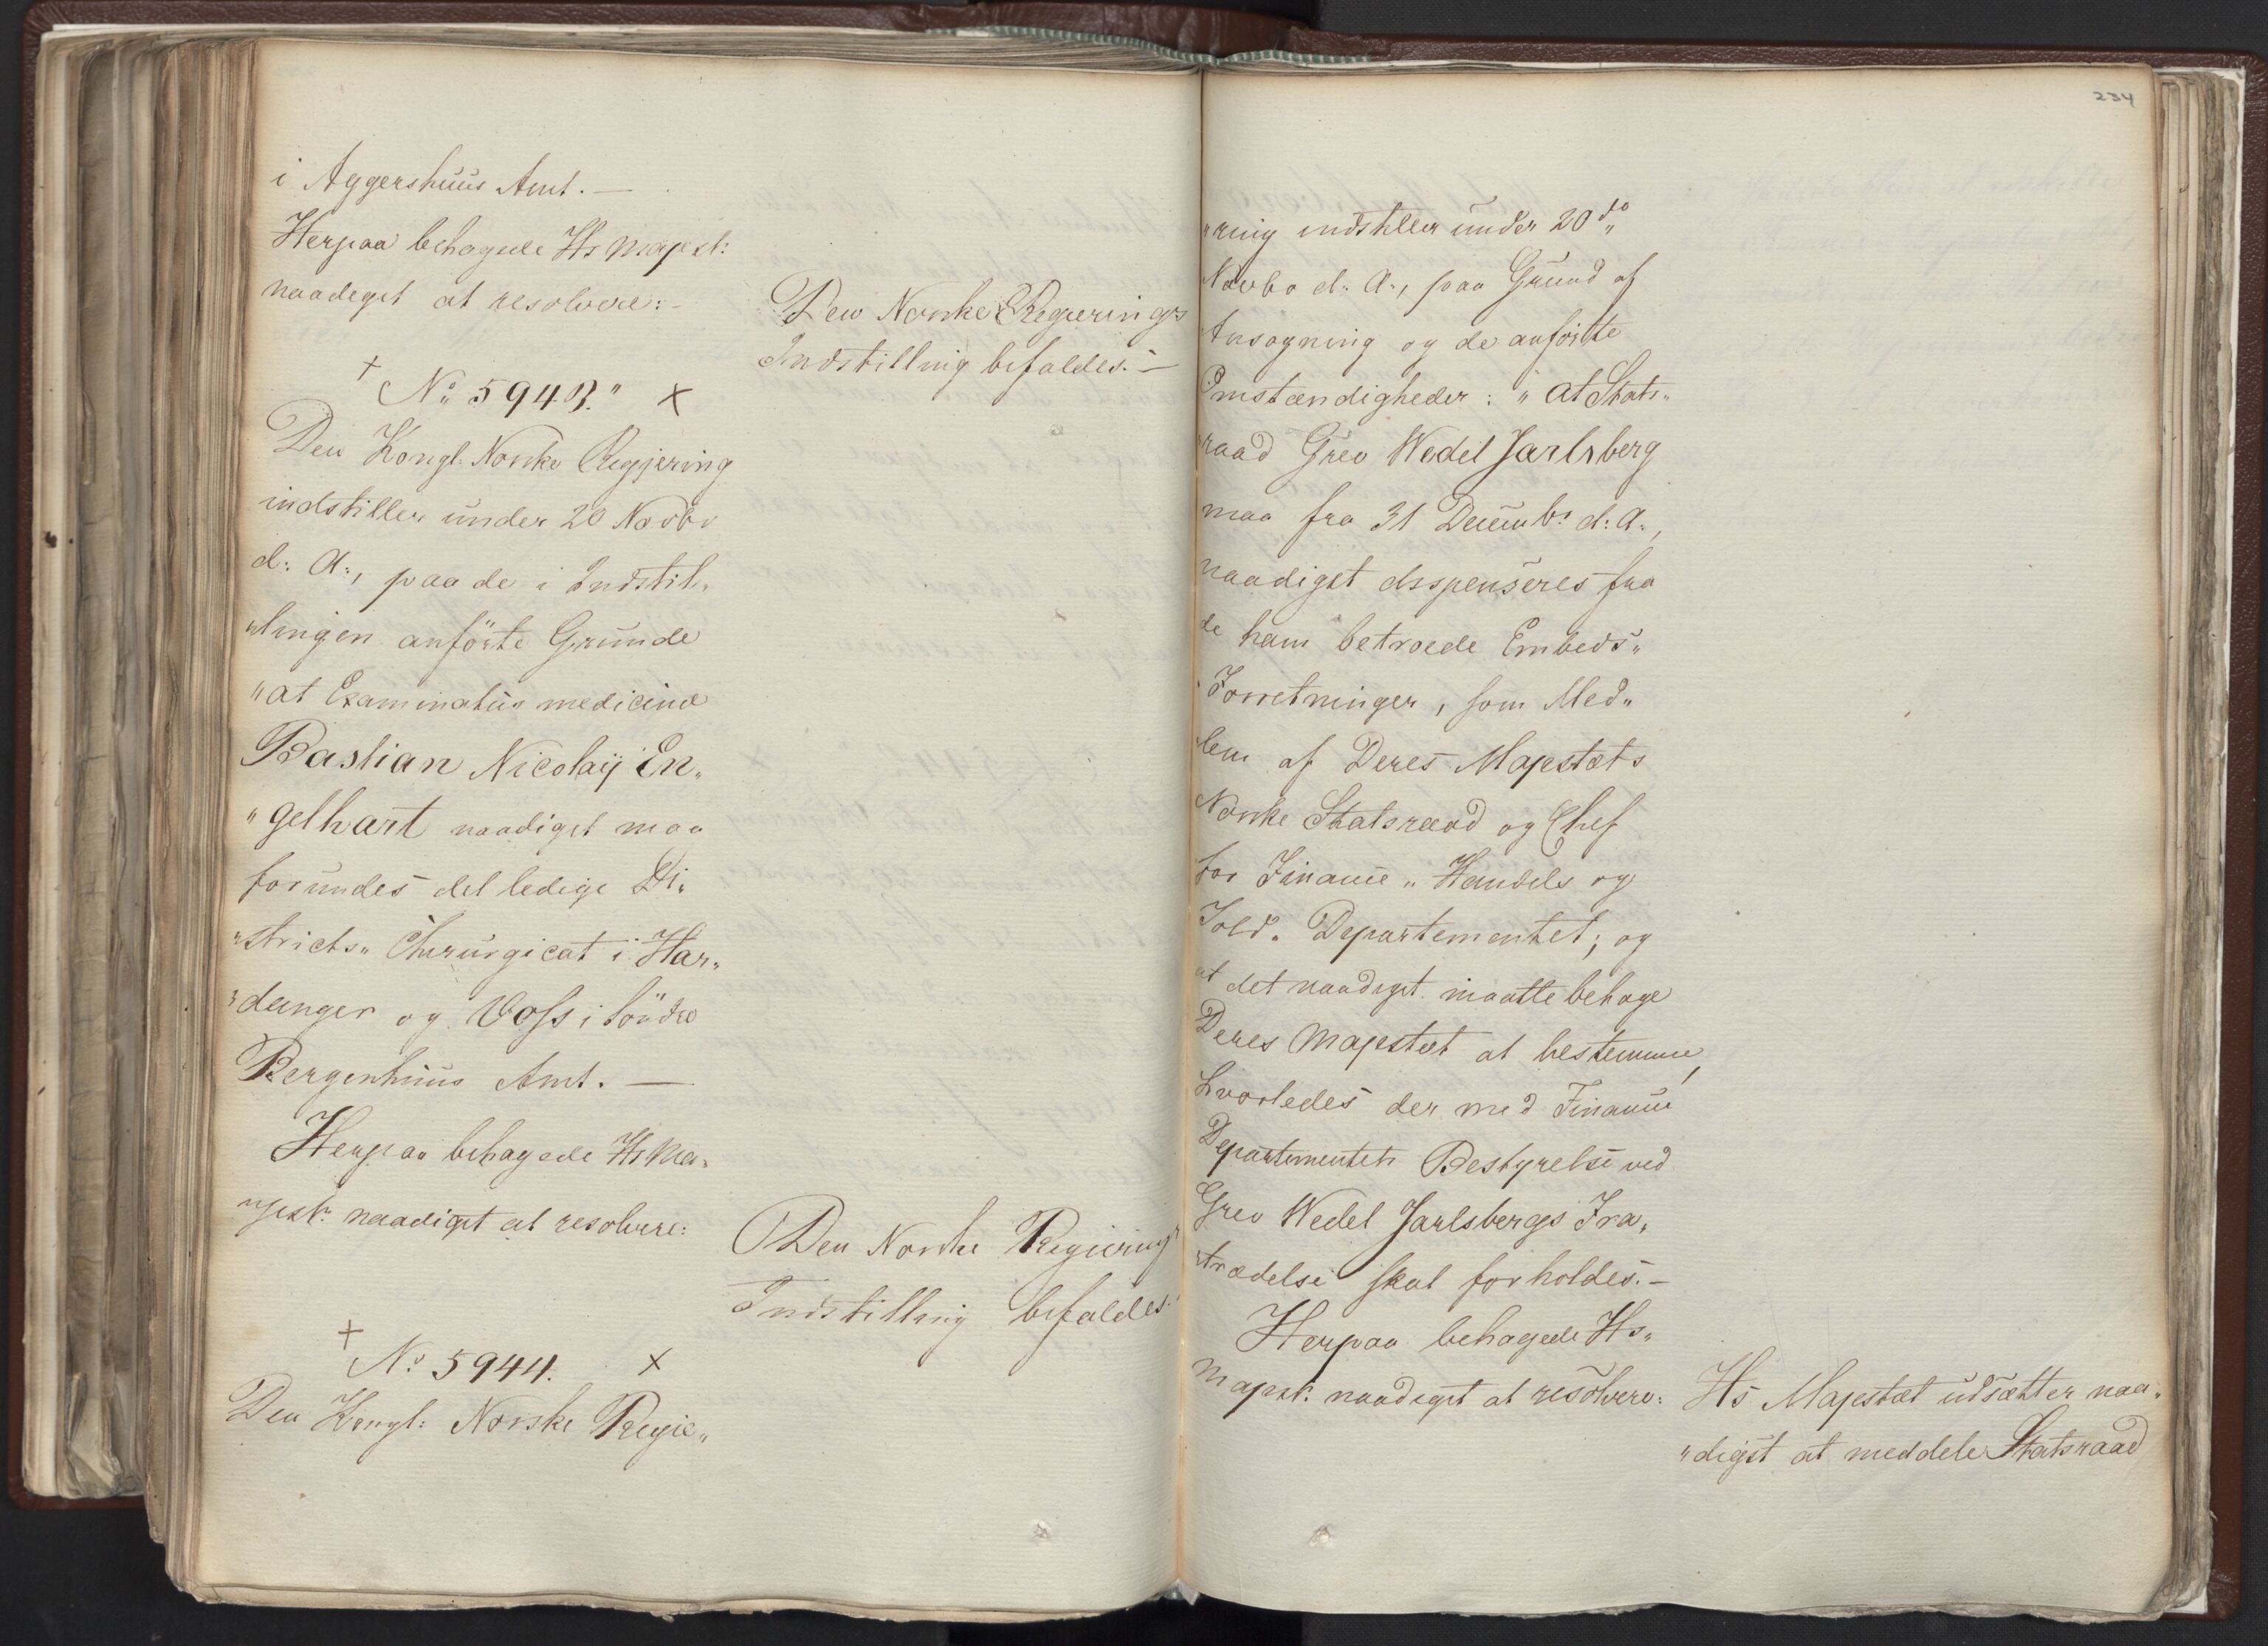 i Aggershuus Amt. —
Herpaa behagede Hs Majest:
naadigst at resolvere: -
Den Norske Regierings
Indstilling bifaldes. —
+ No 5943." x
Den Kongl. Norske Regjering
indstiller under 20 Novbr
d: A:, paa de i Indstil„
„lingen anförte Grunde
„at Examinatus medicinæ
Bastian Nicolaij En„
„gelhart naadigst maa
forundes det ledige Di„
„stricts„ Chirurgicat i Har„
„danger og Voss i Söndre
Bergenhuus Amt. —
Herpaa behagede Hs Ma„
„jest: naadigst at resolvere:
Den Norske Regierings
Indstilling bifaldes.
+ No 5944. x
Den Kongl: Norske Regie„
234
„ring indstiller under 20do
Novbr d: A:, paa Grund af
Ansøgning og de anførte
Omstændigheder: „at Stats„
„raad Grev Wedel Jarlsberg
maa fra 31 Decembr d: A:,
naadigst dispenseres fra
de ham betroede Embeds„
Forretninger, som Med„
lem af Deres Majestæts
Norske Statsraad og Chef
for Finance„ Handels og
Told„ Departementet; og
at det naadigst maatte behage
Deres Majestæt at bestemme,
hvorledes der med Finance
Departementets Bestyrelse ved
Grev Wedel Jarlsbergs Fra„
„trædelse skal forholdes. —
Herpaa behagede Hs„
Majest: naadigst at resolvere:
Hs Majestæt udsætter naa„
„digst at meddele Statsraad